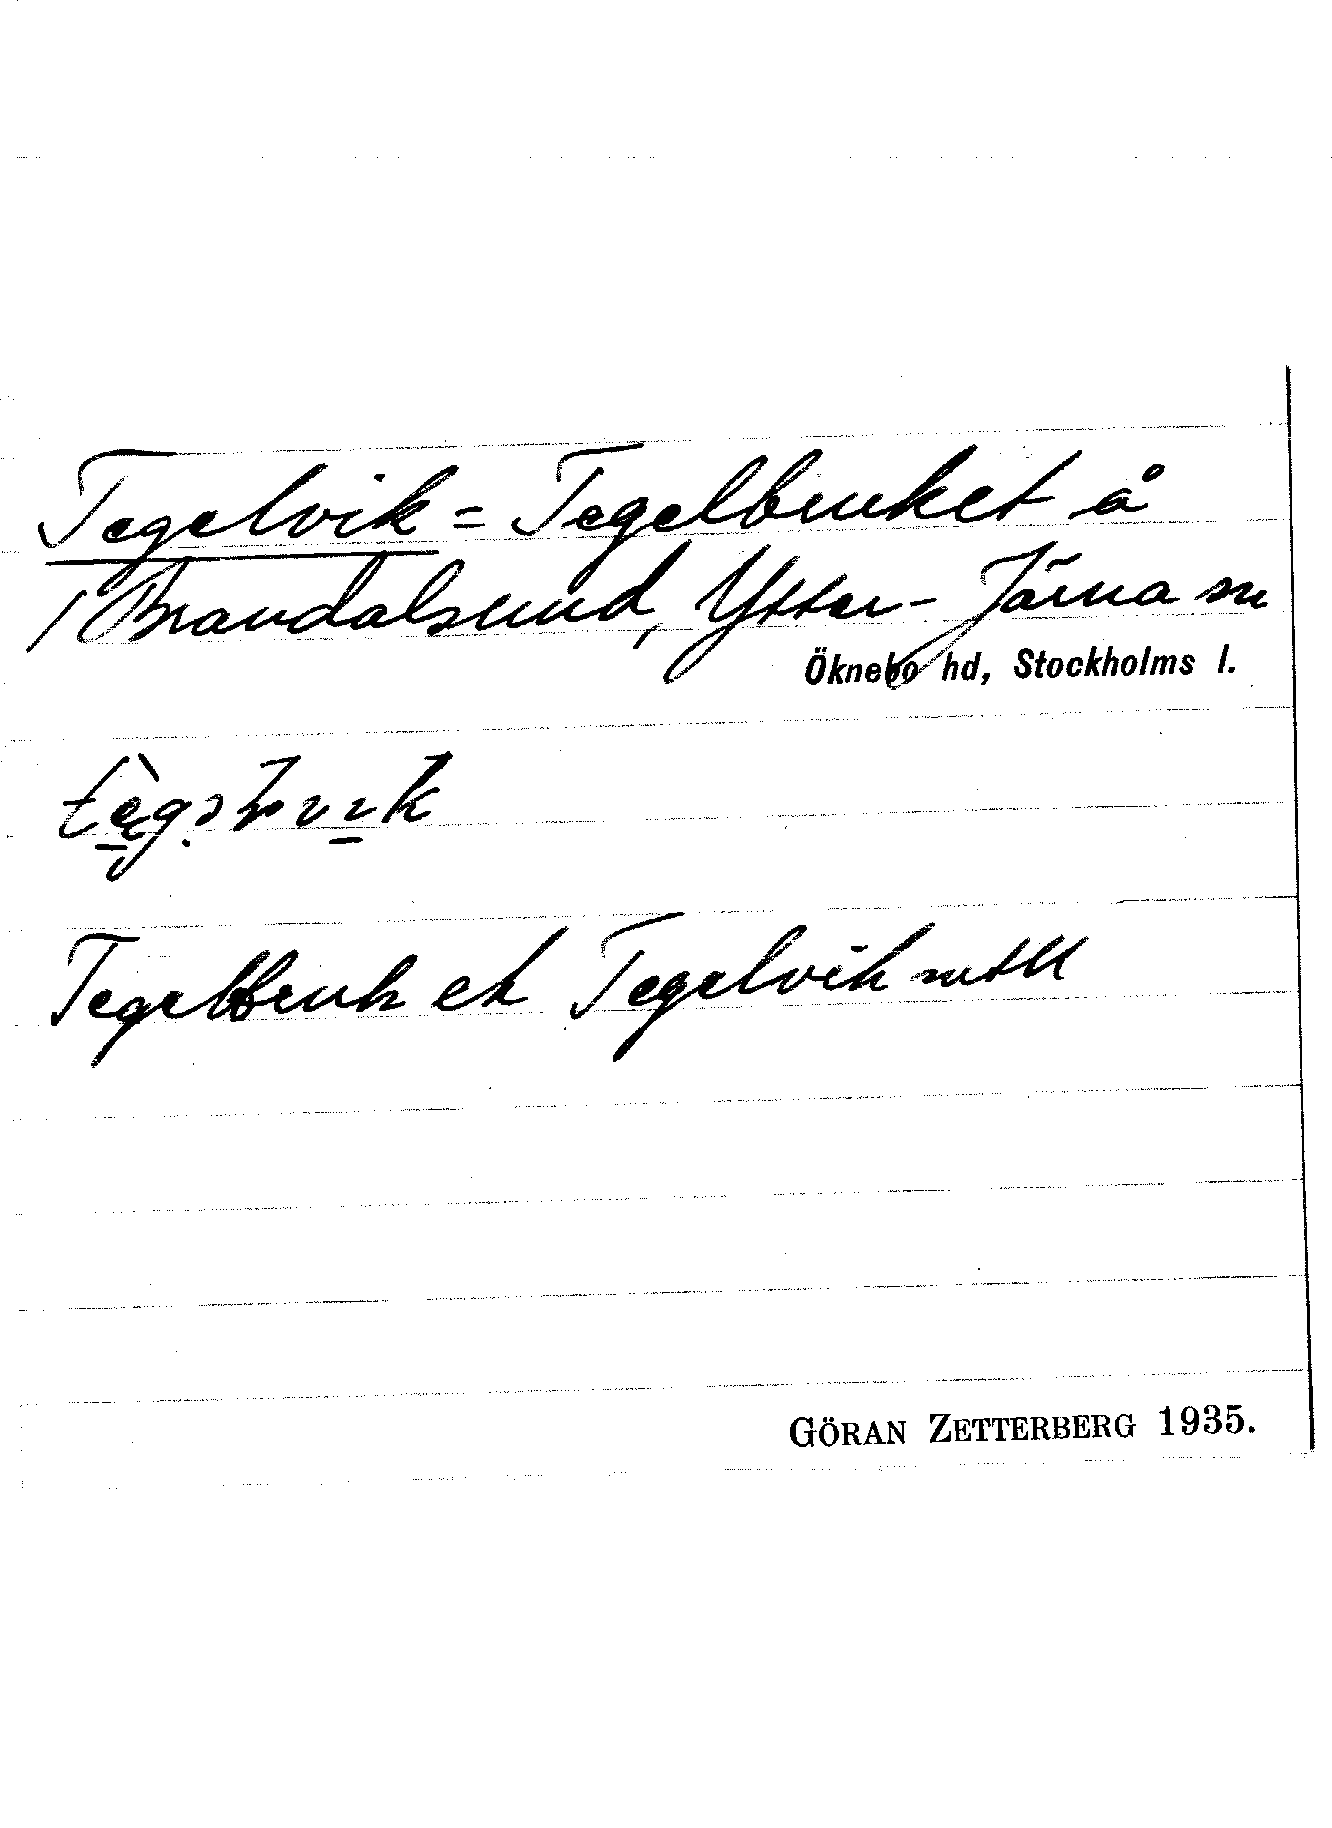 Tegelvik = Tegelbruket å
/ Brandalsund, Ytter-Järna sn
Öknebo hd, Stockholms l.
Tegelbruket Tegelvik mtbl
GÖRAN ZETTERBERG 1935.